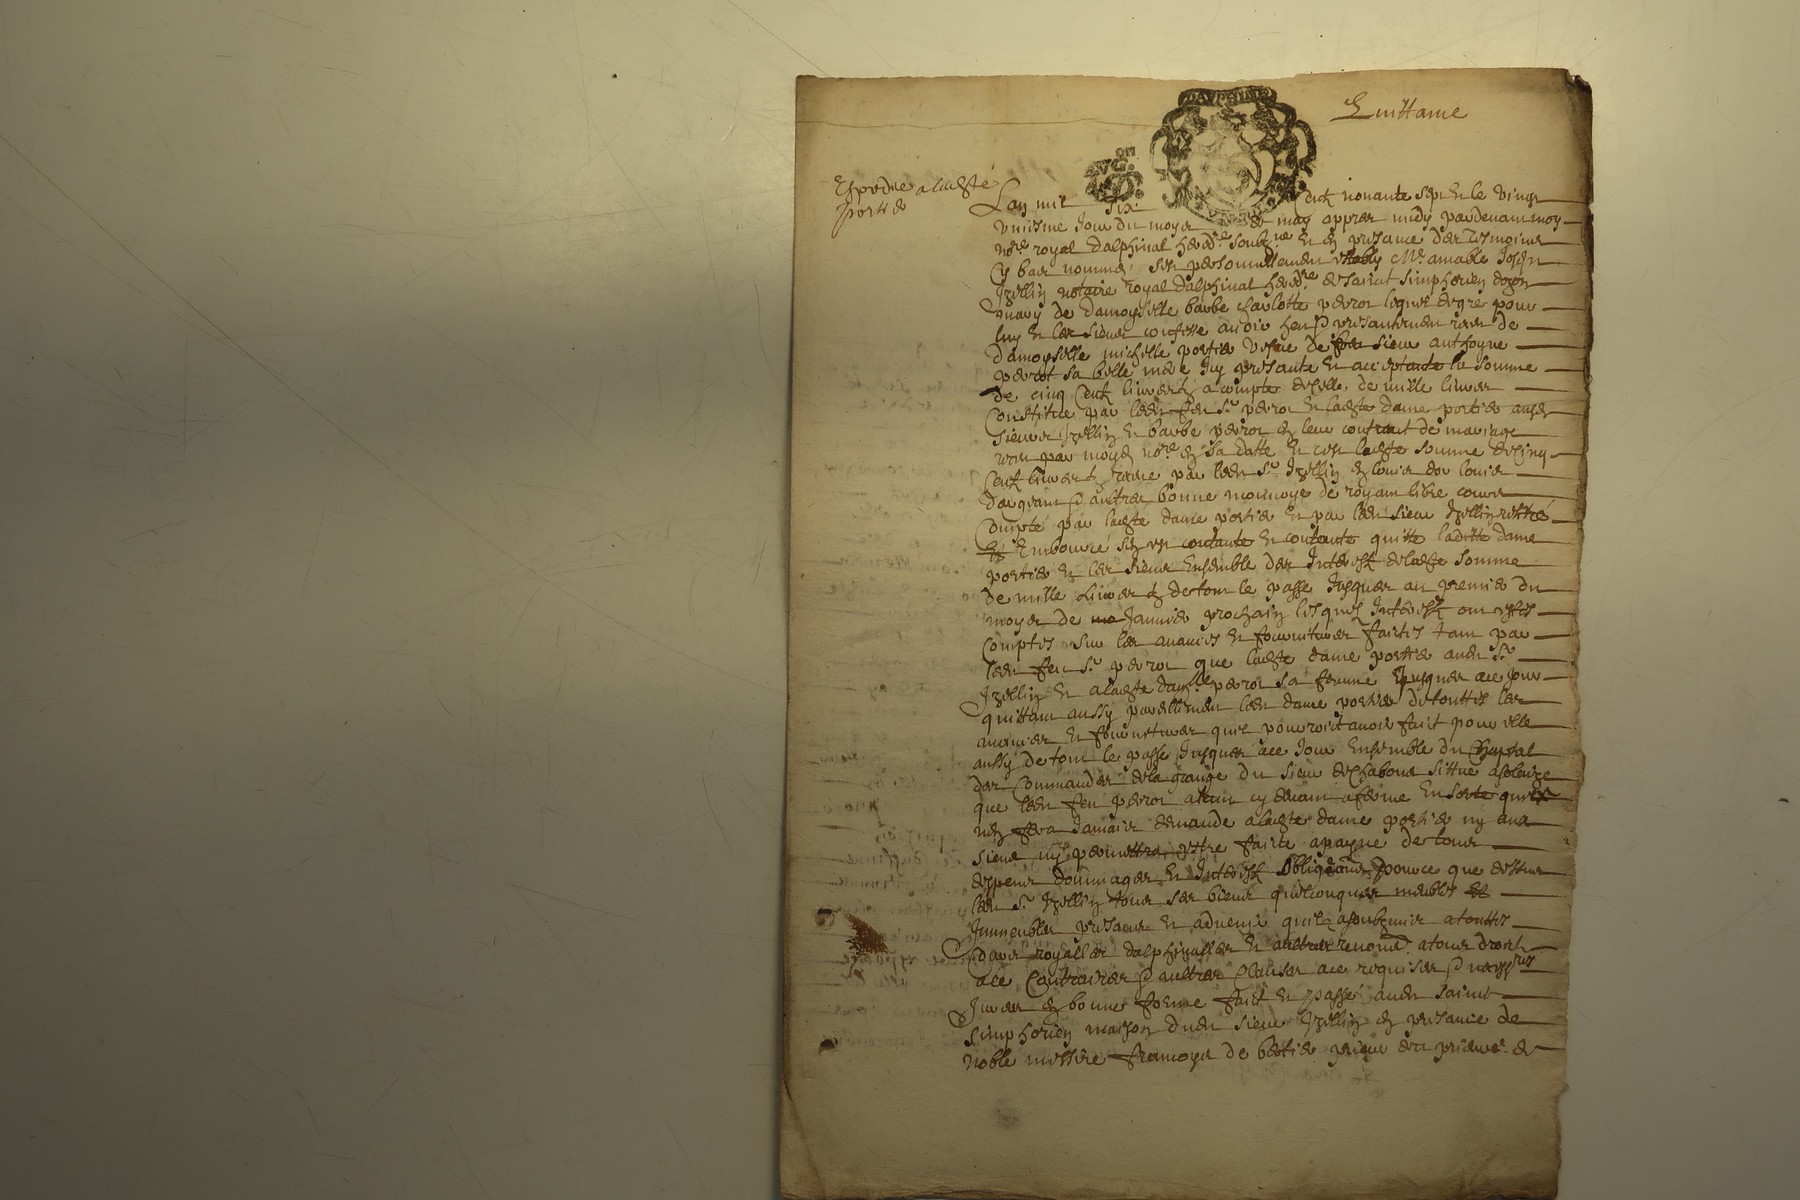 DAVPHINE
Quittance
Expedie a ladte
portier
L'an mil six cent nonante sept et le vingt
uniesme jour du moys de may appres midy pardevant moy
nore royal dalphinal heredre soubzne et en presance des tesmoins
cy bas nommés sest personnellement estably Mr amable Joseph
Izellin notaire royal dalphinal heredre de saint simphorien dozon
mary de damoyselle barbe charlotte perrot lequel de gre pour
luy et les siens confesse avoir heu et presantement receu de
damoyselle michelle portier vefve de feu sieur anthoyne
perrot sa belle mere icy presante et acceptante la somme
de cinq cent livres a compte de celle de mille livres
constitué par led feu sr perrot et ladte dame portier ausd
sieurs Izellin et barbe perrot en leur contract de mariage
receu par moyd nore en sa datte et cest ladte somme de cinq
cent livres receue par led sr Izellin en louis dor louis
dargeant et aultres bonne monnoye de royaume libre cours
compté par ladte dame portier et par led sieur Izellin retiré
et embourcé sen est contante et contante quitte laditte dame
portier et les siens ensemble des interestz de ladte somme
de mille livres de tout le passé jusques au premier du
moys de janvier prochain lesquels interestz ont estes
comptés sur les avances et fournitures faictes tant par
led feu sr perrot que ladte dame portier aud sr
Izellin et a ladte damlle perrot sa femme jusques a ce jour
quittant aussy pareillement led dame portier de touttes les
avances et fournitures quil pourroit avoir fait pour elle
aussy de tout le passé jusques a ce jour ensemble du
des commandes de la grange du sieur de chabons sittué a
que led feu perrot avoit cy devant afermé ensorte quil
nen fera jamais demande a ladte dame portier ny aux
siens ny permettra estre faicte a payne de tous
despens dommages et interestz obligeant pour ce que dessus
led sr Izellin tous ses biens quelconques meubles et
immeubles presans et advenir quil a soubzmis a touttes
cours royalles dalphinalles et aultres renoncé a tous droits
a ce contraires et aultres clauses a ce requises et necessres
jurées en bonne forme fait et passé aud saint
simphorien maison dud sieur Izellin en presance de
noble messire francoys de bertier prieur du prieuré de